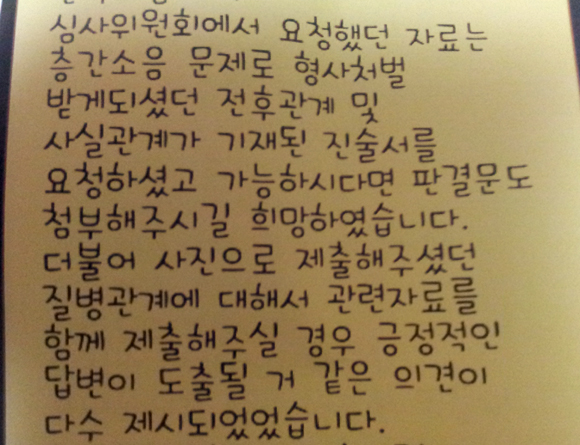 심사위원회에서 요청했던 자료는
층간소음 문제로 형사처벌
받게되셨던 전후관계 및
사실관계가 기재된 진술서를
요청하셨고 가능하시다면 판결문도
첨부해주시길 희망하였습니다.
더불어 사진으로 제출해주셨던
질병관계에 대해서 관련자료를
함께 제출해주실 경우 긍정적인
답변이 도출될 거 같은 의견이
다수 제시되었었습니다.